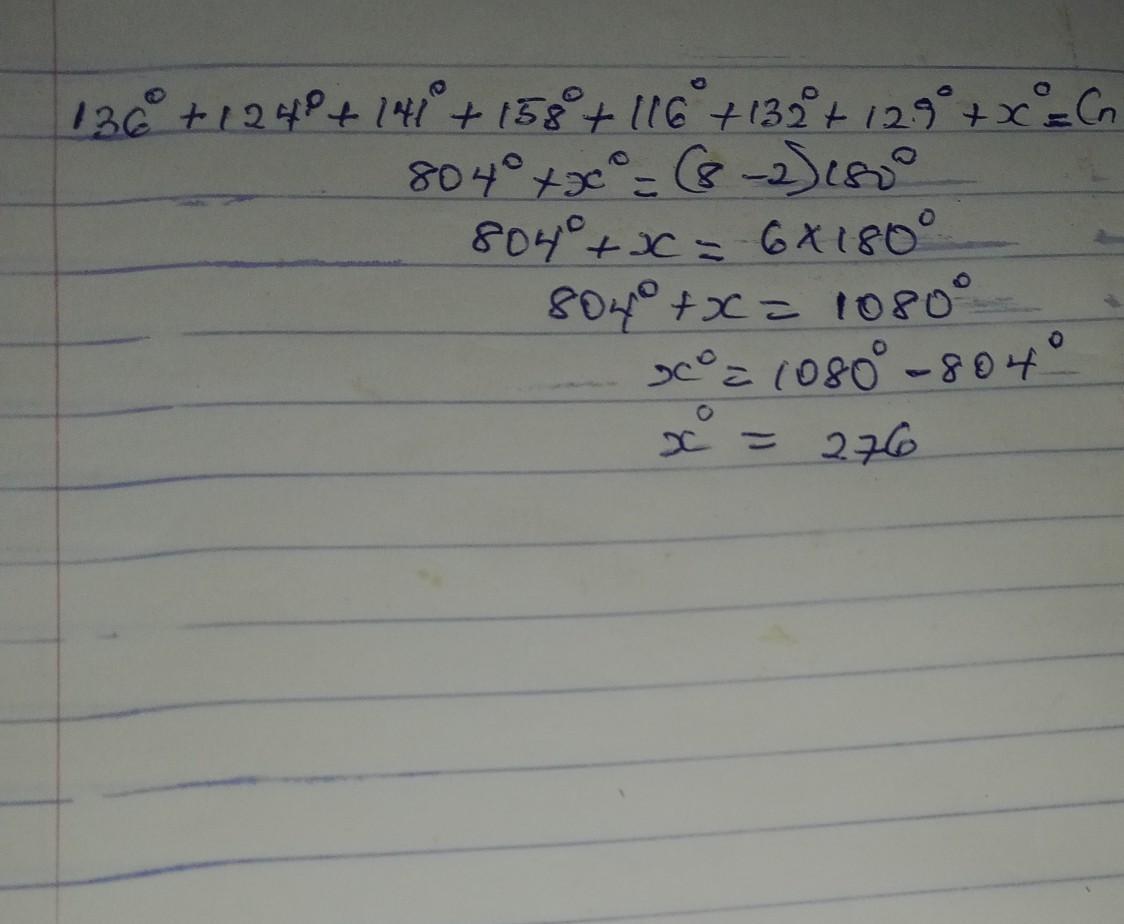 136° + 124° + 141° + 158° + 116° + 132° + 129° + x° = Cn
804° + x° = (8 - 2)180°
804° + x = 6 × 180°
804° + x = 1080°
x° = 1080° - 804°
x° = 276